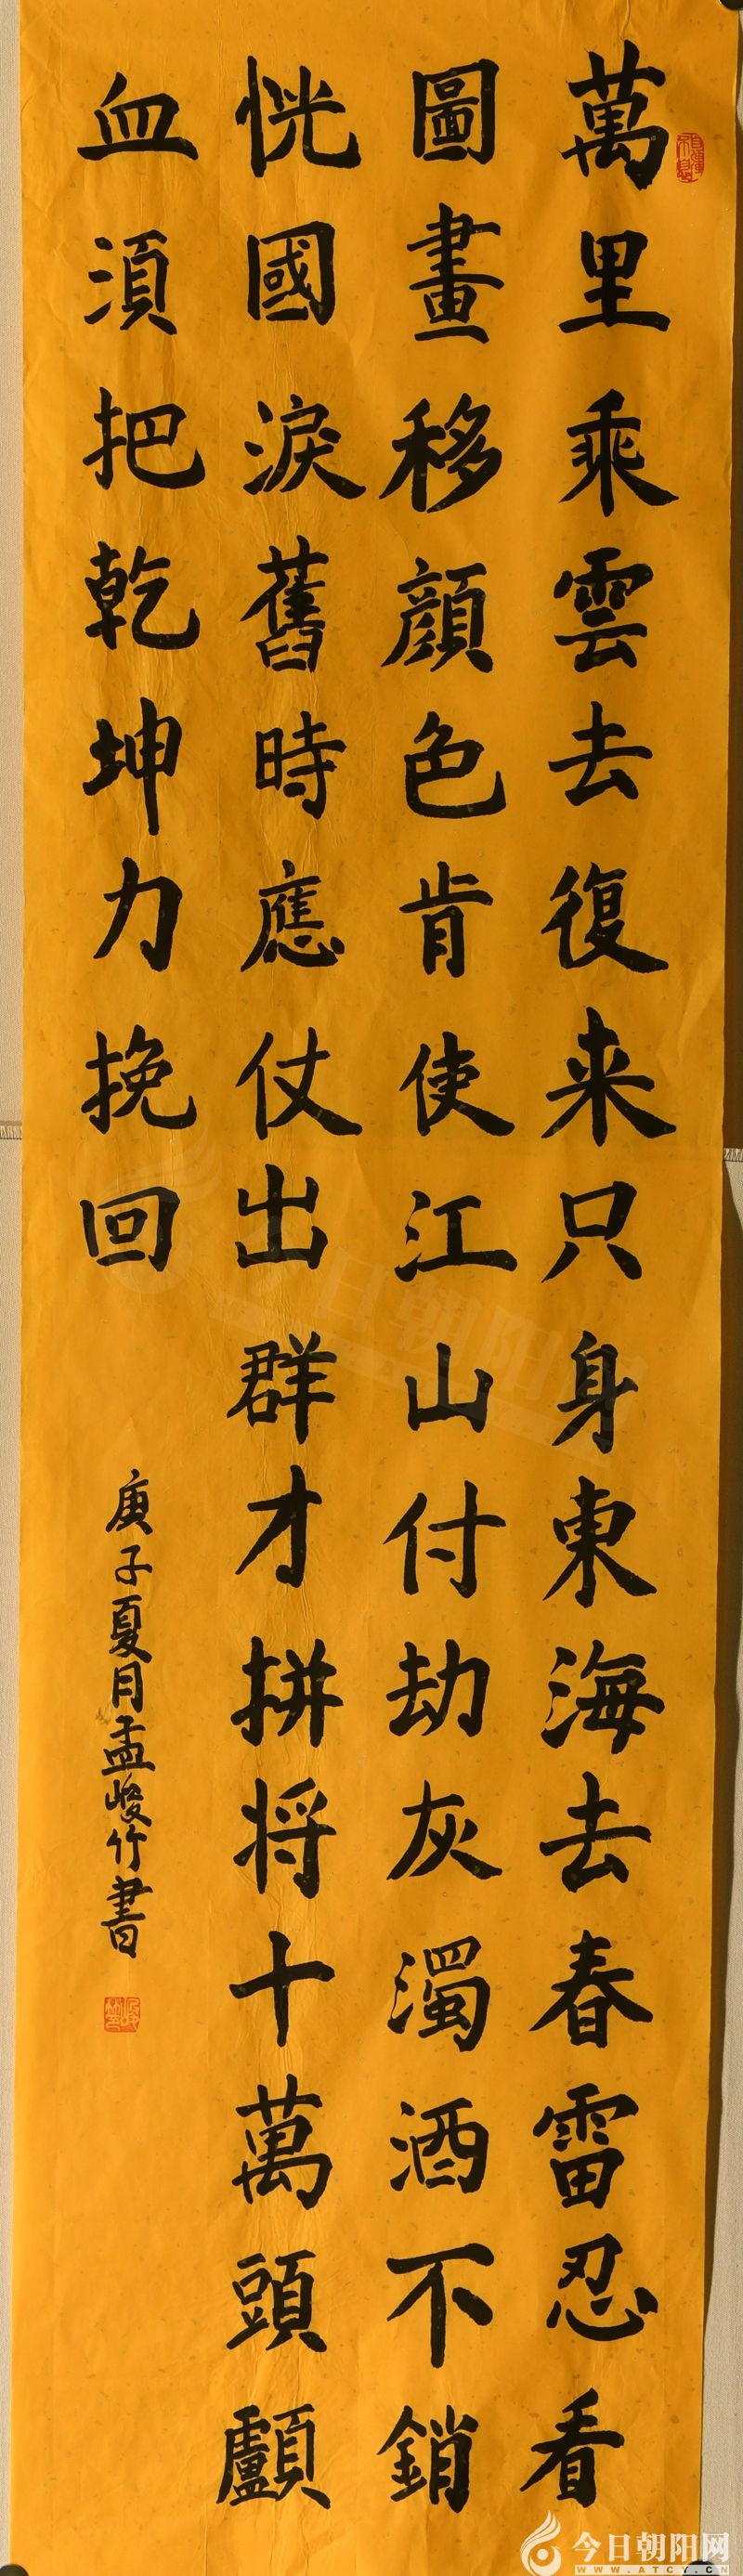 萬里乘雲去復来只身東海去春雷忍看
圖畫移顔色肯使江山付劫灰濁酒不銷
恍國淚舊時應仗出群才拼将十萬頭顱
血須把乾坤力挽回
庚子夏月孟峻竹書
今日朝阳网
WWW.ATCY.CN